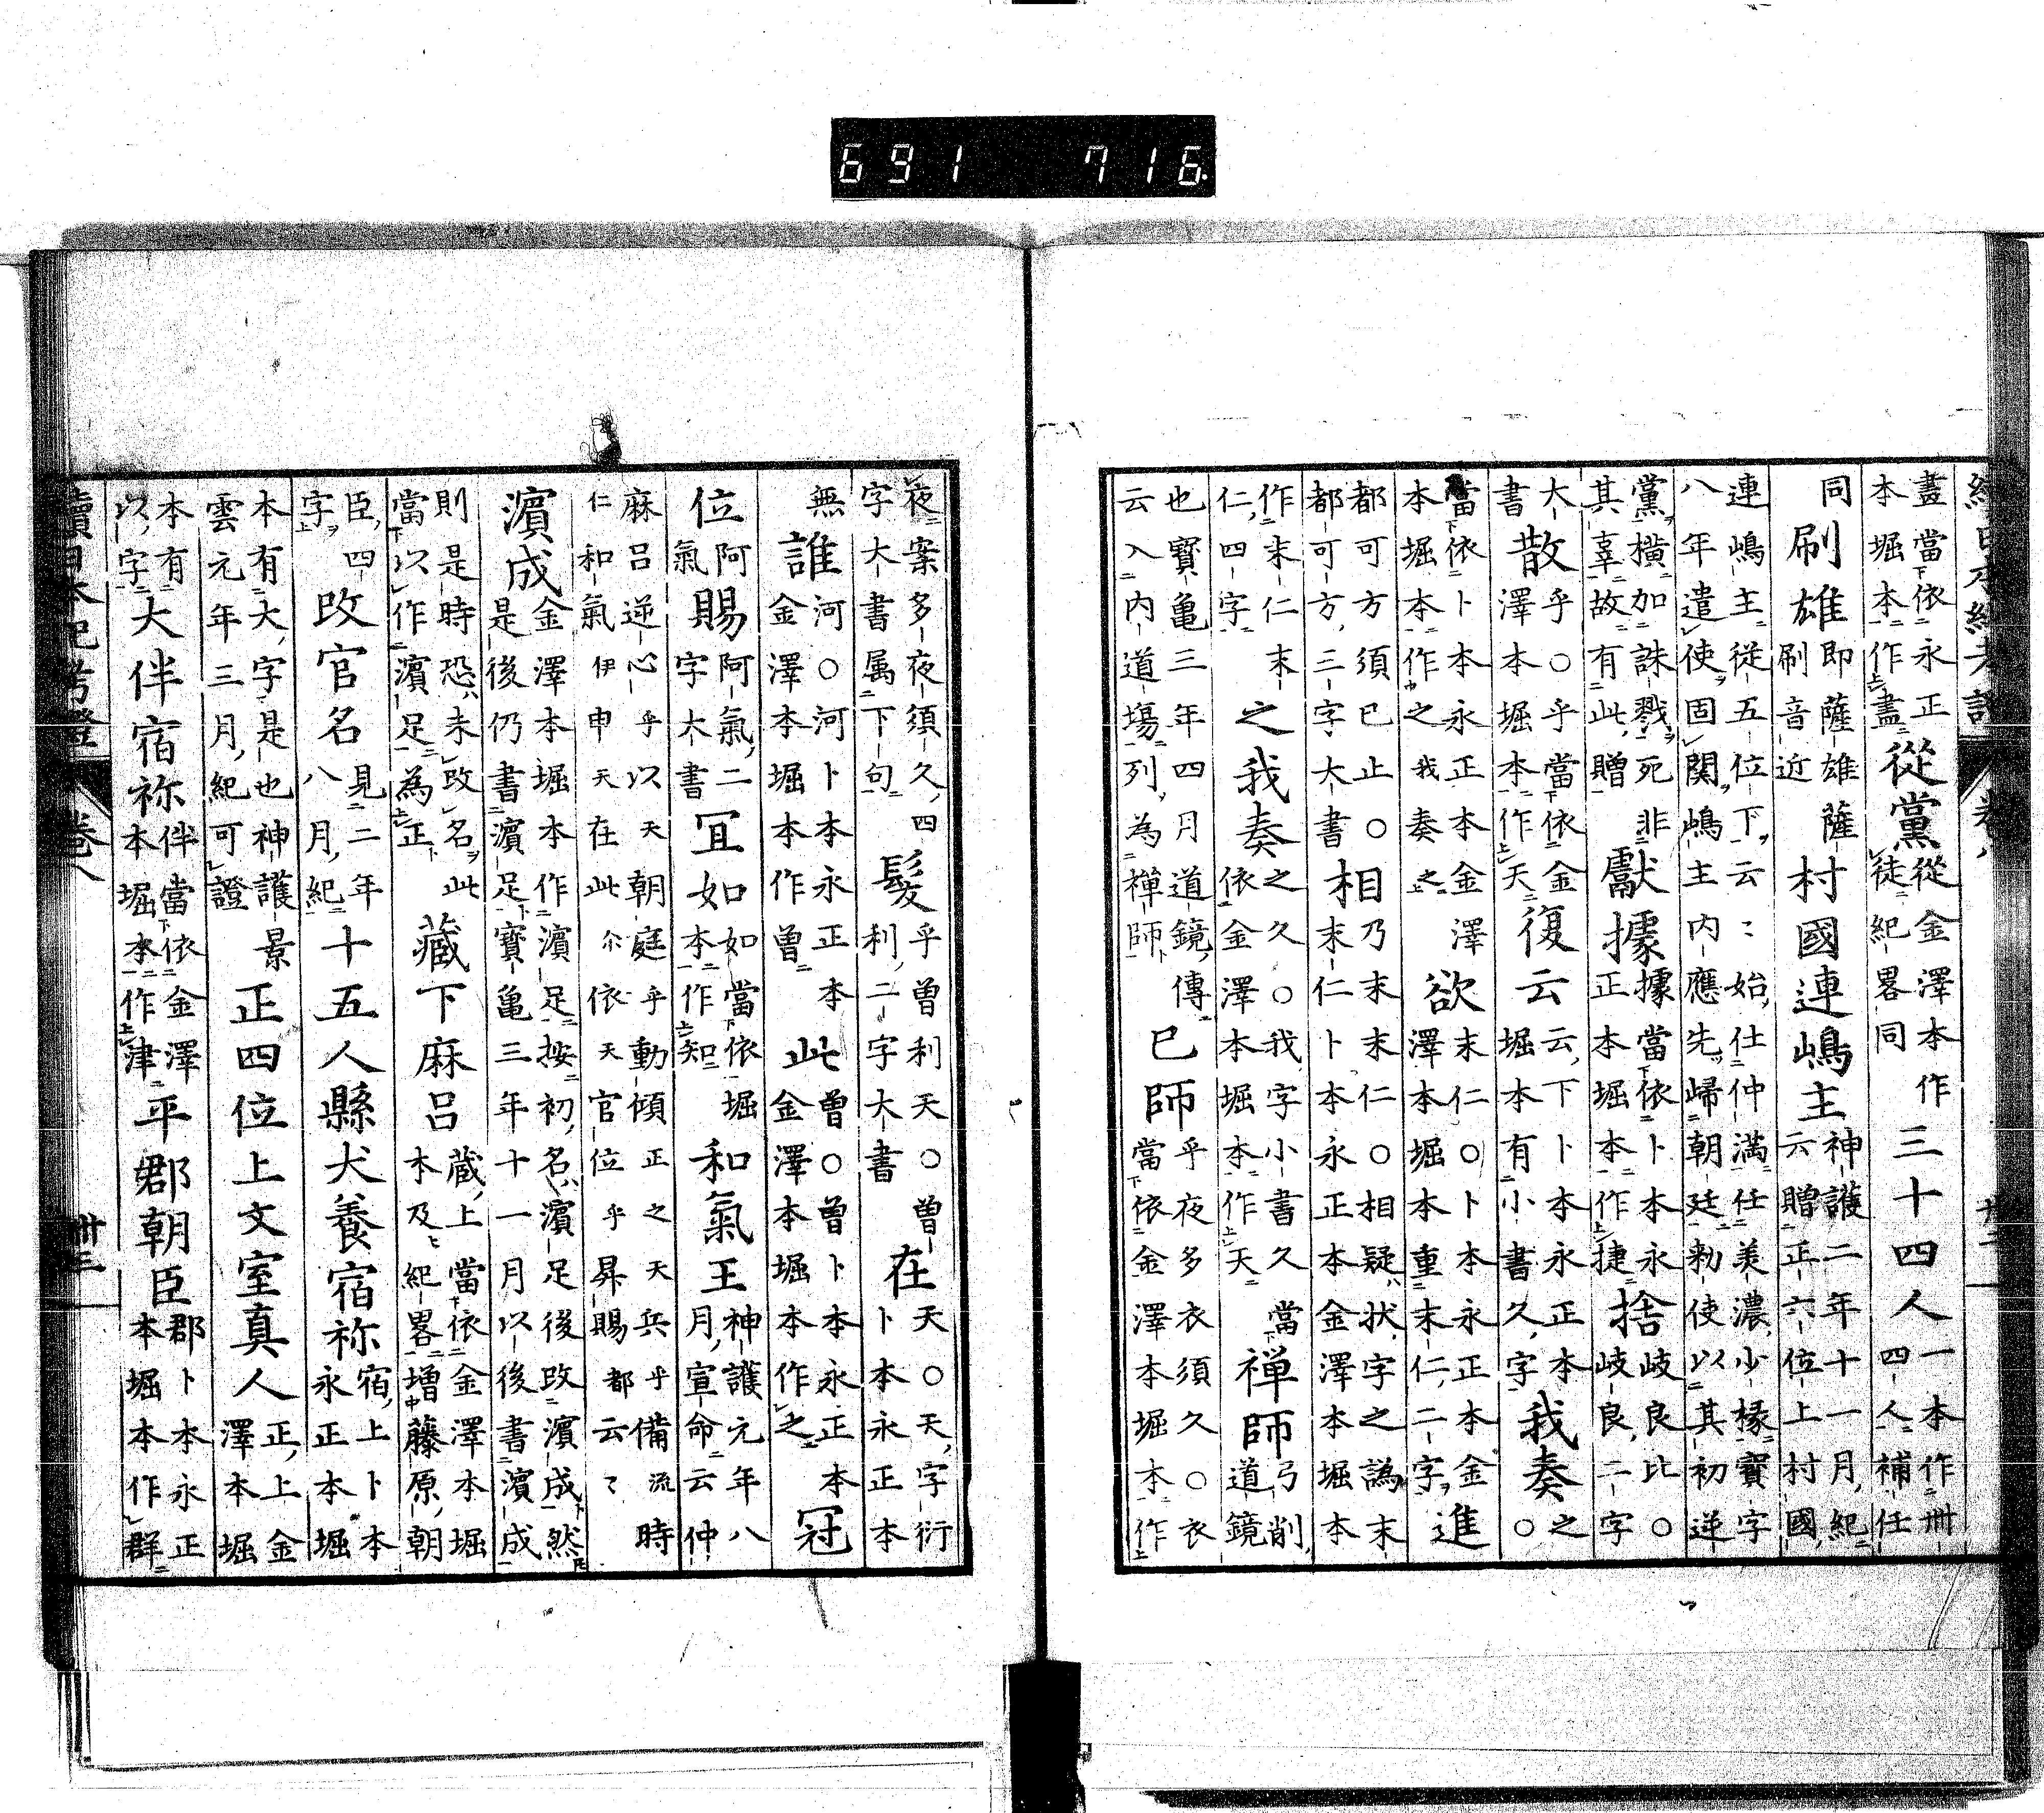 691 716
續日本紀考證 卷八
盡當依永正本堀本作盡從黨從金澤本作徒紀畧同三十四人一本作卅四人補任
同刷雄即薩雄薩刷音近村國連嶋主神護二年十一月紀云贈正六位上村國
連嶋主從五位下云〻始仕仲滿任美濃少掾寶字八年遣使固關嶋主內應先歸朝廷勅使以其初逆
黨橫加誅戮死非其辜故有此贈獻據據當依卜本永正本堀本作捷捨岐良比○岐良二字
大書散乎○乎當依金澤本堀本作天復云云下卜本永正本堀本有小書久字我奏之○
當依卜本永正本金澤本堀本作之我奏之欲末仁○卜本永正本金澤本堀本重末仁二字進
都可方須巳止○都可方三字大書相乃末末仁○相疑狀字之譌末末仁卜本永正本金澤本堀本
作末仁末仁四字之我奏之久○我字小書久當依金澤本堀本作天禪師弓削道鏡
也寶亀三年四月道鏡傳云入內道場列為禪師巳師乎夜多衣須久○衣當依金澤本堀本作
夜案多夜須久四字大書属下句髮乎曽利天○曽利二字大書在天○天字衍卜本永正本
無誰河○河卜本永正本金澤本堀本作曽此曽○曽卜本永正本金澤本堀本作之冠
位阿氣賜阿氣二字大書冝如如當依堀本作知和氣王神護元年八月宣命云仲
麻呂逆心乎以天朝庭乎動傾正之天兵乎備流時仁和氣伊申天在此尓依天官位乎昇賜都云〻
濵成金澤本堀本作濵足按初名濵足後改濵成然是後仍書濵足寶亀三年十一月以後書濵成
則是時恐未改名此當以作濵足為正藏下麻呂藏上當依金澤本堀本及紀畧增藤原朝
臣四字改官名見二年八月紀十五人縣犬養宿祢宿上卜本永正本堀
本有大字是也神護景雲元年三月紀可證正四位上文室真人正上金澤本堀
本有以字大伴宿祢伴當依金澤本堀本作津平郡朝臣郡卜本永正本堀本作群
續日本紀考證 卷八